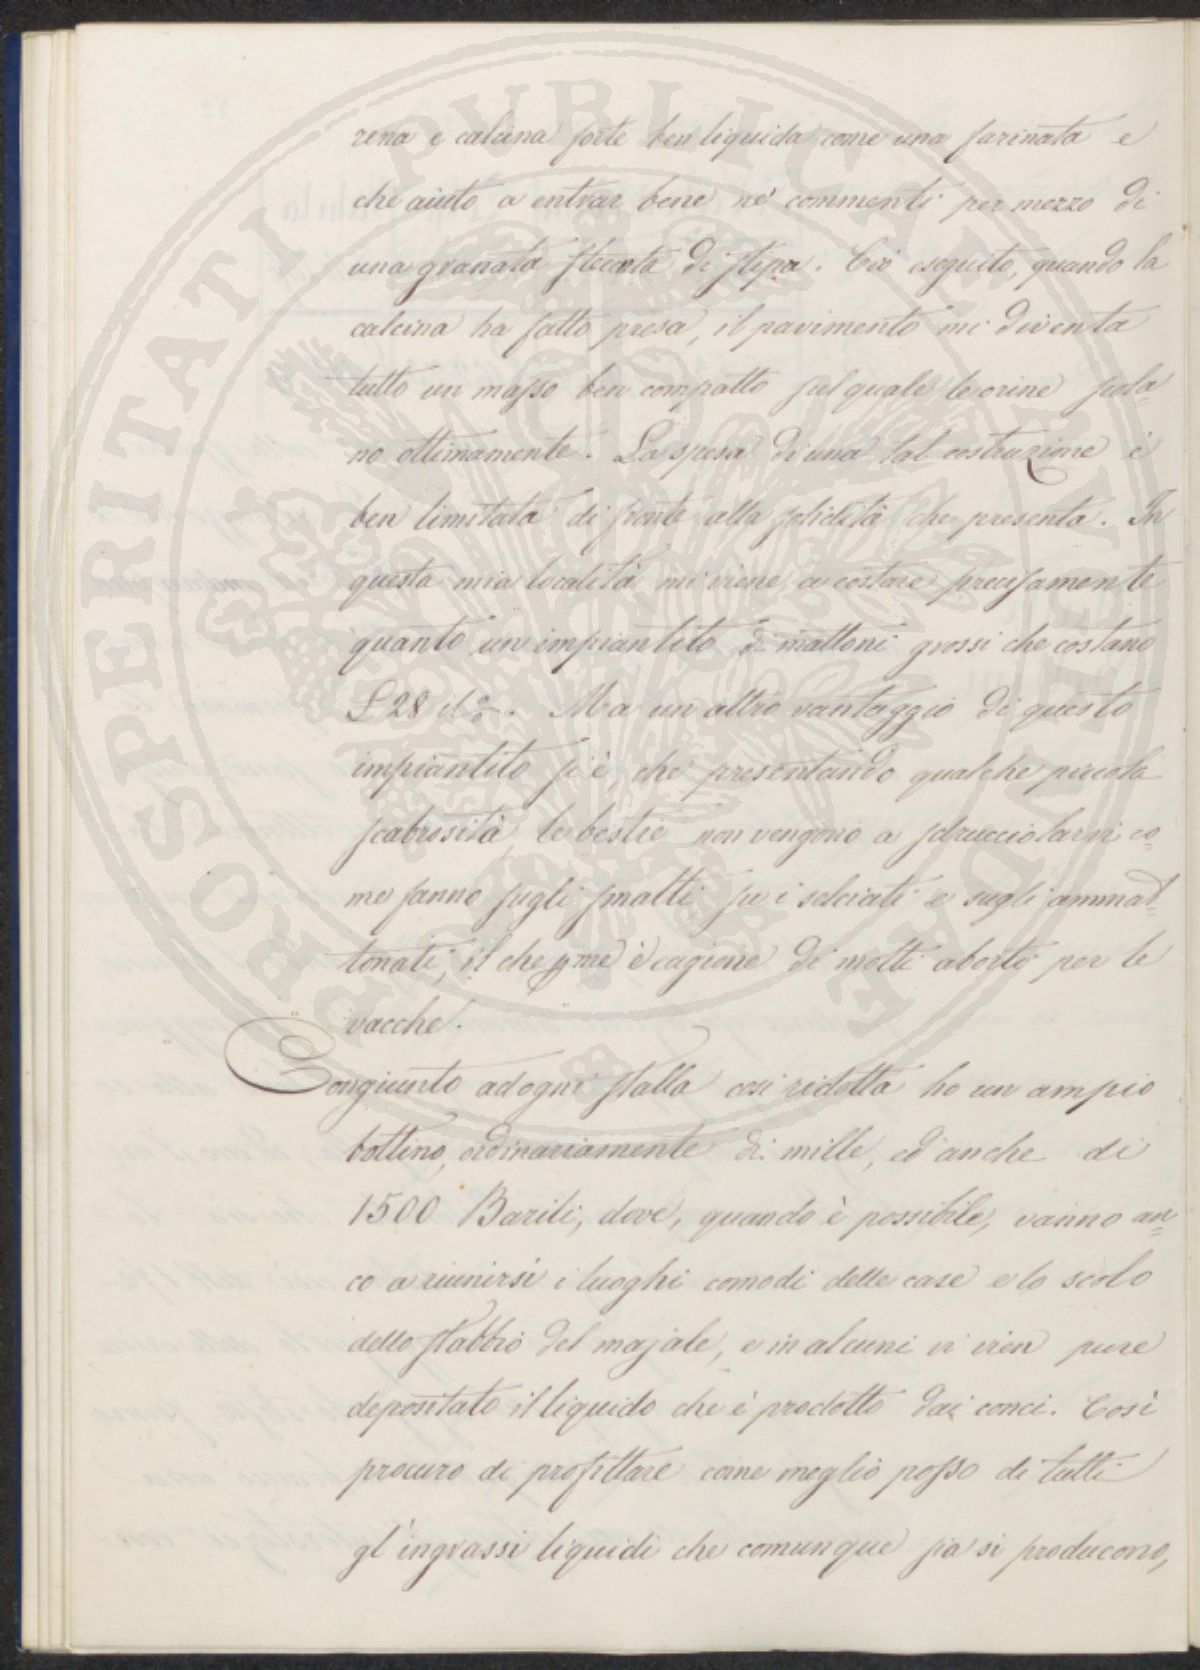 rena e calcina forte ben liquida come una farinata e
che aiuto a entrar bene ne' commenti per mezzo di
una granata di stipa. Ciò eseguito, quando la
calcina ha fatto presa, il pavimento mi diventa
tutto un masso ben compatto sul quale le orine scola=
no ottimamente. La spesa di una tal costruzione è
ben limitata di fronte alla solidità che presenta. In
questa mia località mi viene a costare precisamente
quanto un impiantito di mattoni grossi che costano
£ 28 il %. Ma un altro vantaggio di questo
impiantito si è, che presentando qualche piccola
scabrosità, le bestie non vengono a sdrucciolarvi co=
me fanno sugli smalti su i selciati e sugli ammat=
tonati; il che è cagione di molti aborti per le
vacche.
Congiunto ad ogni stalla così ridotta ho un ampio
bottino, ordinariamente di mille, ed anche di
1500 Barili, dove, quando è possibile, vanno an=
co a riunirsi i luoghi comodi delle case e lo scolo
dello stabbio del majale, e in alcuni vi vien pure
depositato il liquido che è prodotto dai conci. Così
procuro di profittare come meglio posso di tutti
gl'ingrassi liquidi che comunque sia si producono,
PROSPERITATI PVBLICAE AVGENDAE